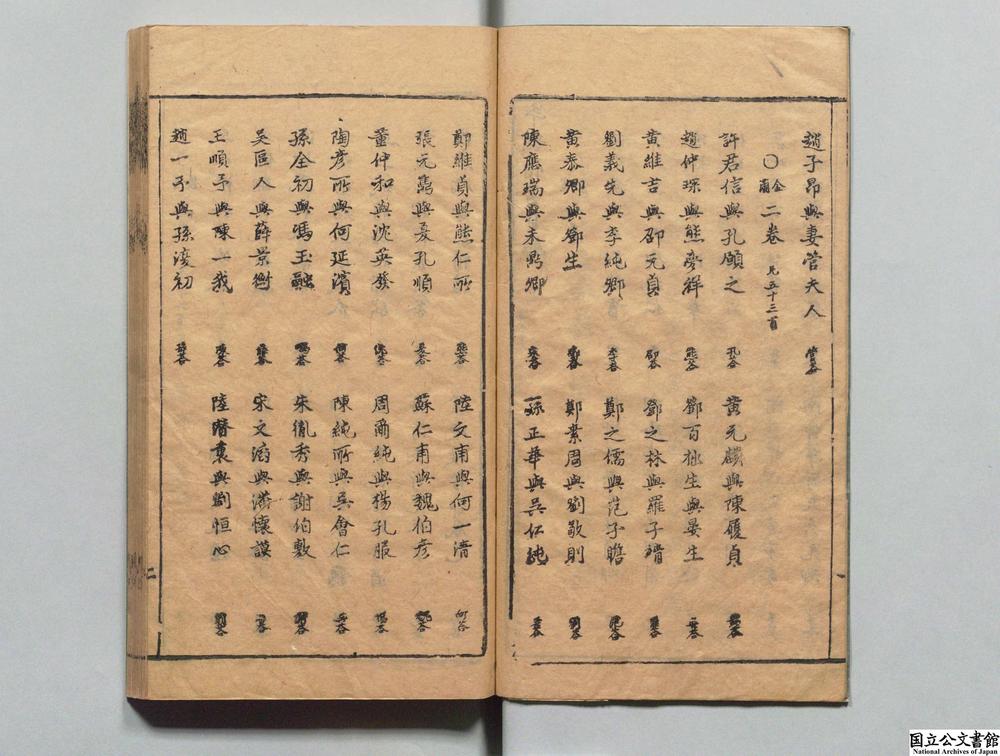 趙子昂與妻管夫人 管答
○金蘭二卷 凡五十三首
許君信與孔願之 孔答
黃元麟與陳履貞
趙仲琛與熊夢祥 熊答
鄧百拙生與晏生
黃維吉與邵元貞 邵答
鄧之林與羅子瑨 羅答
劉義先與李純卿 李答
鄭之儒與范子瞻 范答
黃泰卿與鄧生 鄧答
鄭業周與劉敬則 劉答
陳應瑞與朱勗卿 朱答
孫正華與吳仁純 吳答
鄭維貞與熊仁所 熊答
陸文甫與何一清 何答
張元雋與夏孔順 夏答
蘇仁甫與魏伯彥 魏答
董仲和與沈英發 沈答
周爾純與楊孔服 楊答
陶彥所與何延濱 何答
陳純所與吳會仁 吳答
孫全初與馮玉融 馮答
朱胤秀與謝伯敷 謝答
吳區人與薛景衡 薛答
宋文滔與潘懷謨
王順予與陳一我 陳答
陸替襄與劉恒心 劉答
趙一不與孫濬初
二
国立公文書館
National Archives of Japan